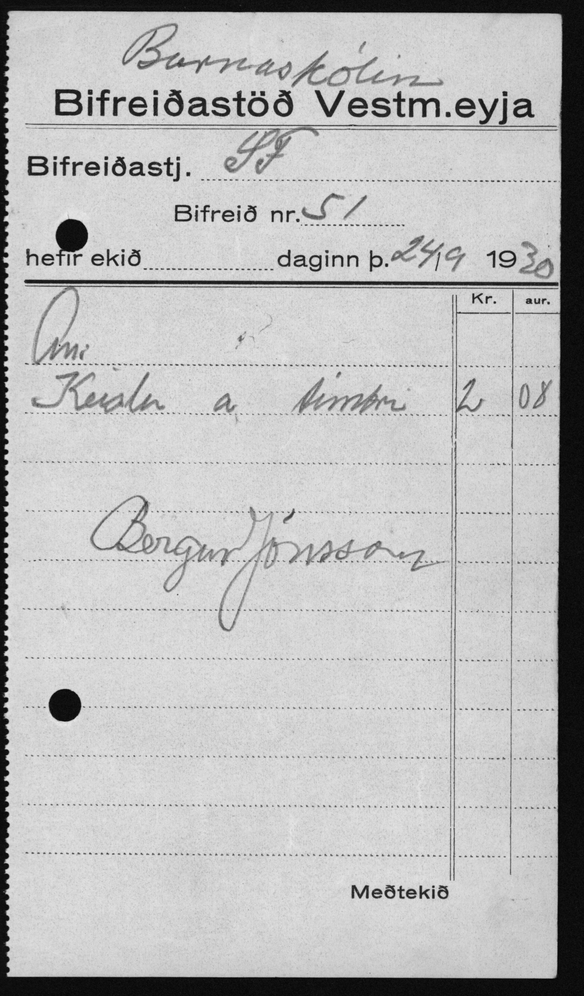 Barnaskólin
Bifreiðastöð Vestm.eyja
Bifreiðastj. SF
Bifreið nr. 51
hefir ekið daginn þ. 24/9 1930
Kr. aur.
Keisla a timbri 2 08
Bergur Jónsson
Meðtekið